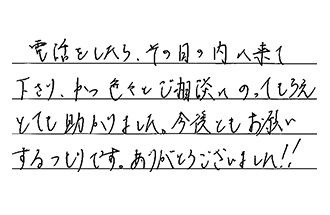 電話をしたら、その日の内に来て
下さり、かつ色々とご相談にのってもらえ
とても助かりました。今後ともお願い
するつもりです。ありがとうございました!!